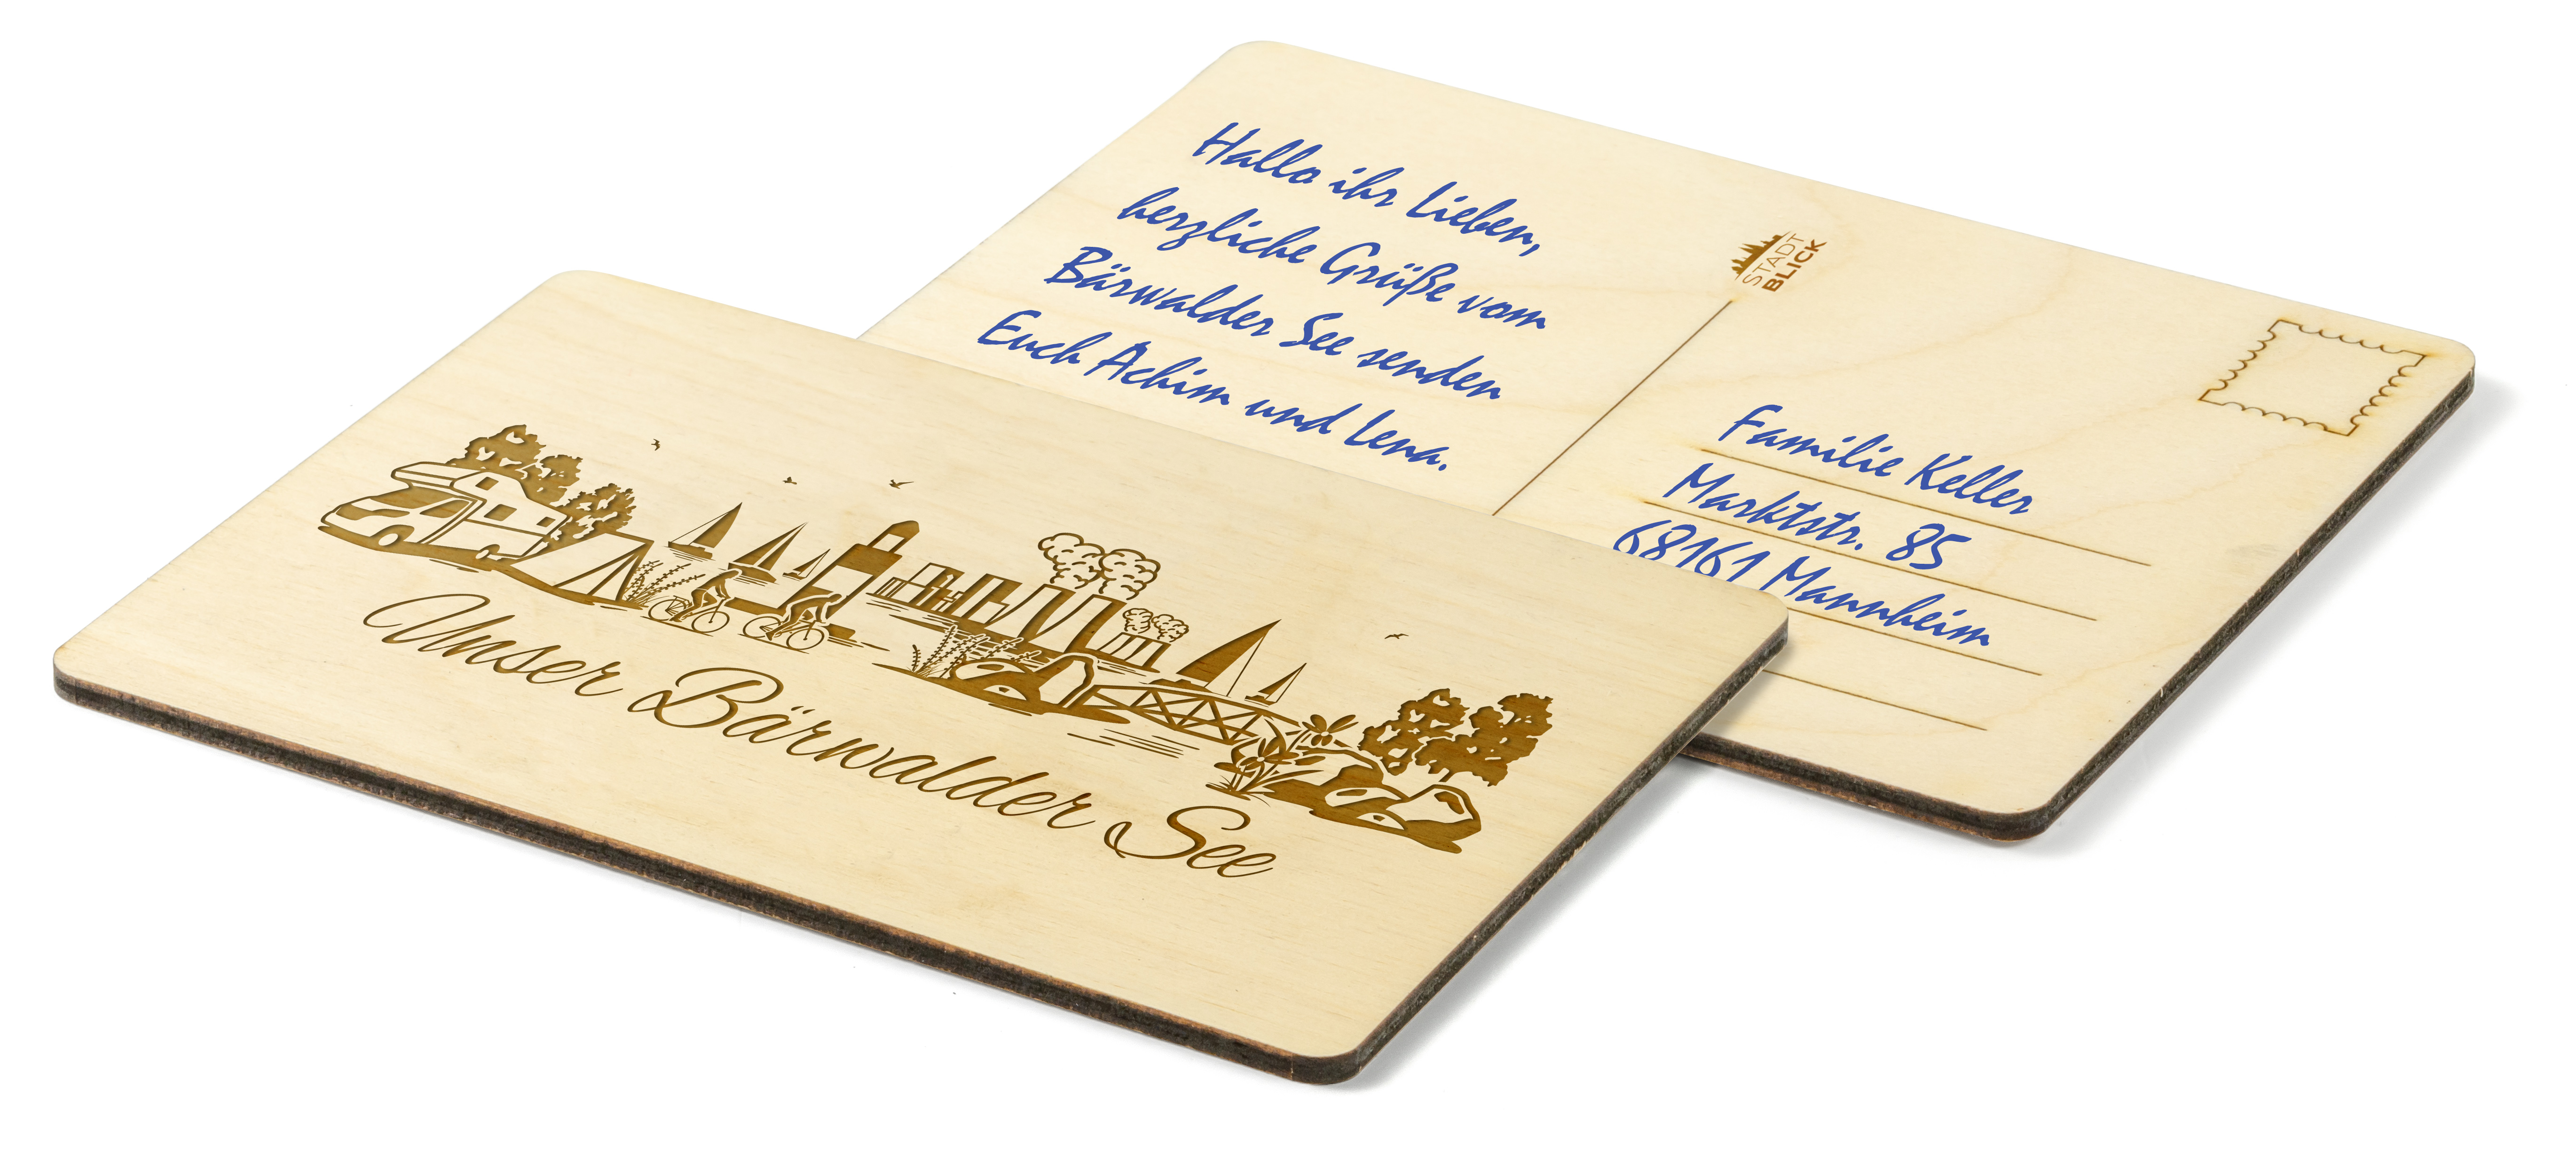 Hallo ihr Lieben,
herzliche Grüße vom
Bärwalder See senden
Euch Achim und Lena.
STADT
BLICK
Familie Keller
Marktstr. 85
68161 Mannheim
Unser Bärwalder See